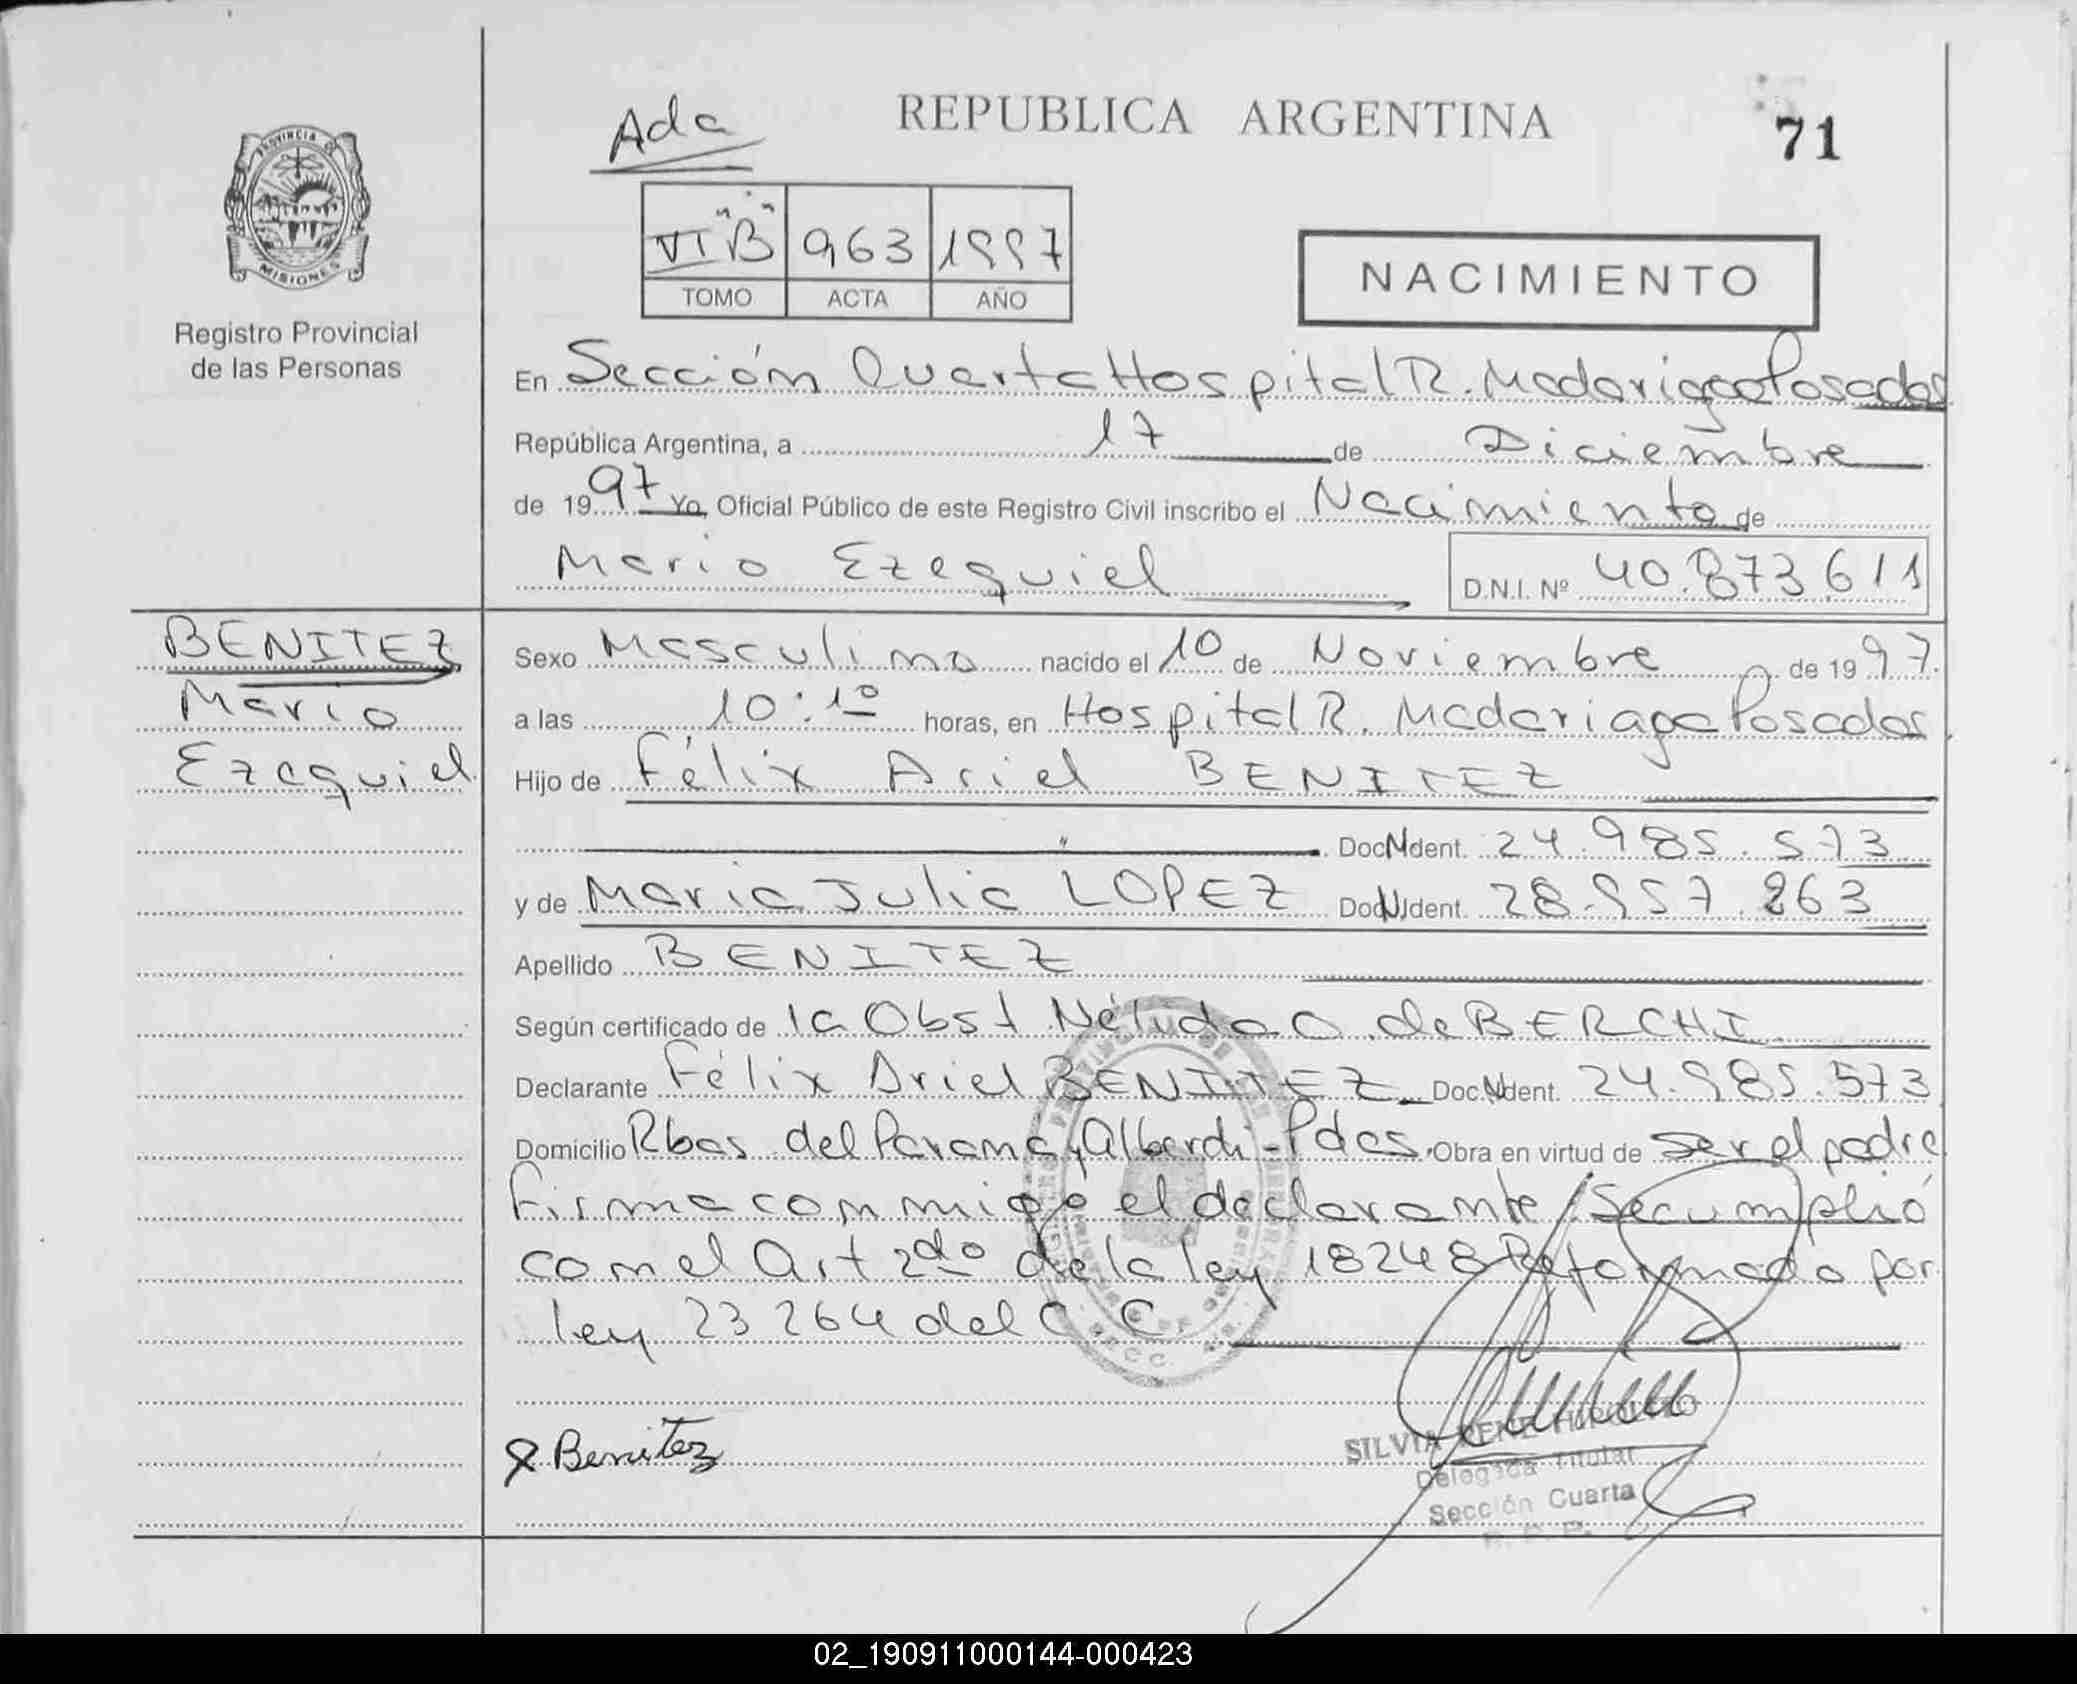 Ada
REPUBLICA ARGENTINA
71
PROVINCIA DE
MISIONES
Registro Provincial
de las Personas
VI "B" 963 1997
TOMO ACTA AÑO
NACIMIENTO
En Sección Cuarta Hospital R. Madariaga Posadas
República Argentina, a 17 de Diciembre
de 1997 Yo, Oficial Público de este Registro Civil inscribo el Nacimiento de
Mario Ezequiel D.N.I. Nº 40.873.611
BENITEZ
Mario
Ezequiel
Sexo Masculino nacido el 10 de Noviembre de 1997.
a las 10:10 horas, en Hospital R. Madariaga Posadas
Hijo de Félix Ariel BENITEZ
" Doc N Ident. 24.985.573
y de Maria Julia LOPEZ Doc N Ident. 28.957.263
Apellido BENITEZ
Según certificado de la Obst Nélida O. de BERCHI
Declarante Félix Ariel BENITEZ Doc N Ident. 24.985.573
Domicilio Rbas del Parana y Alberdi - Pdas. Obra en virtud de ser el padre
Firma conmigo el declarante / Se cumplió
con el Art 2do de la ley 18248 Reformado por
ley 23264 del C.C.
Benitez
SILVIA RENE HIPOLITO
Delegada Titular
Sección Cuarta
02_190911000144-000423